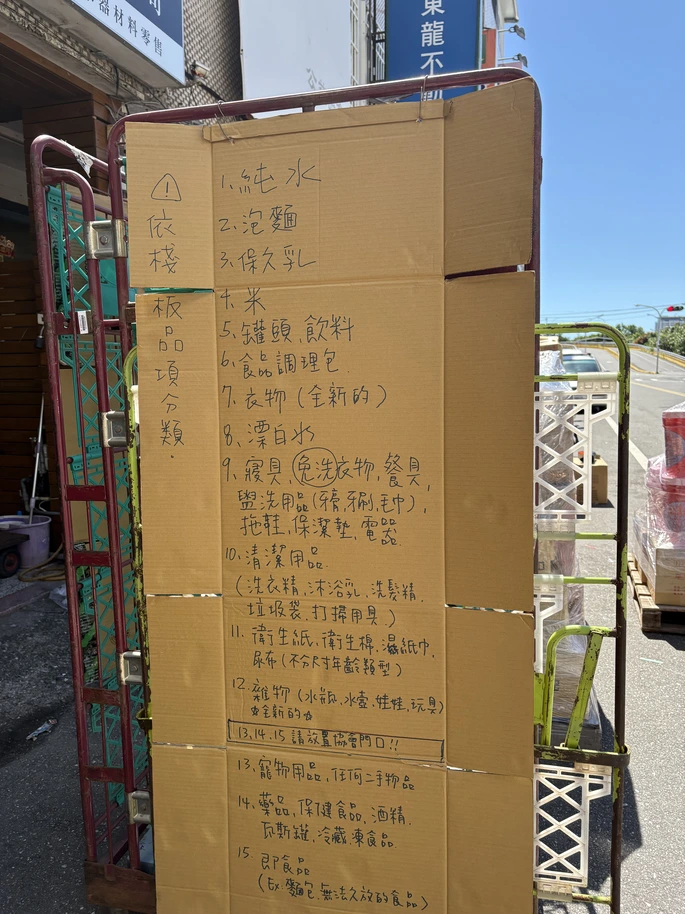 器材料零售
東龍不動
⚠
依
棧
板
品
項
分
類.
1. 純水
2. 泡麵
3. 保久乳
4. 米
5. 罐頭、飲料
6. 食品調理包.
7. 衣物(全新的)
8. 漂白水
9. 寢具、免洗衣物、餐具、
盥洗用品(牙膏、牙刷、毛巾)、
拖鞋、保潔墊、電器
10. 清潔用品
(洗衣精、沐浴乳、洗髮精、
垃圾袋、打掃用具、)
11. 衛生紙、衛生棉、濕紙巾、
尿布(不分尺寸年齡類型)
12. 雜物(水瓶、水壺、娃娃、玩具)
☆全新的☆
13、14、15 請放置協會門口!!
13. 寵物用品、任何二手物品
14. 藥品、保健食品、酒精、
瓦斯罐、冷藏凍食品
15. 即食品
(Ex:麵包、無法久放的食品)